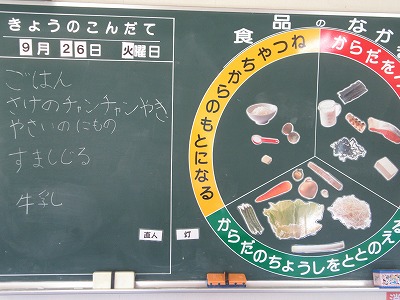 きょうのこんだて
9月26日 火曜日
ごはん
さけのチャンチャンやき
やさいのにもの
すましじる
牛乳
直人
灯
食品のなかま
ちからやねつのもとになる
からだを
からだのちょうしをととのえる